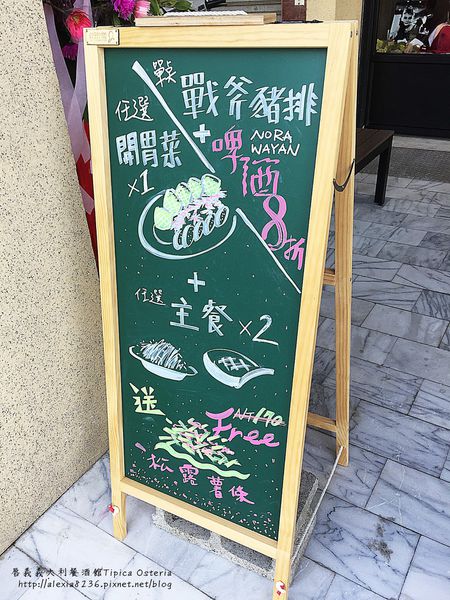 點 戰斧豬排
任選
開胃菜
x1
+
NORA
WAYAN
啤酒
8折
+
任選
主餐 x2
送
NT170
Free
松露薯條
魯義義大利餐酒館Tipica Osteria
http://alexia8236.pixnet.net/blog